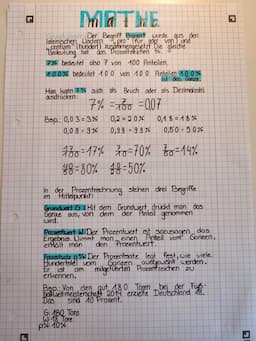 MATHE
Der Begriff Prozent wurde aus den
lateinischen Wörtern "pro" (für oder von) und
"centum" (hundert) zusammengesetzt. Die gleiche
Bedeutung hat das Prozentzeichen %.
7% bedeutet also 7 von 100 Anteilen.
100% bedeutet 100 von 100 Anteilen. 100%
ist das Ganze.
Man kann 7% auch als Bruch oder als Dezimalzahl
ausdrücken:
7% = 7/100 = 0,07
Bsp.: 0,03 = 3% 0,2 = 20% 0,18 = 18%
0,09 = 9% 0,99 = 99% 0,50 = 50%
17/100 = 17% 7/10 = 70% 7/50 = 14%
= 80% = 50%
In der Prozentrechnung stehen drei Begriffe
im Mittelpunkt:
Grundwert G: Mit dem Grundwert drückt man das
Ganze aus, von dem der Anteil genommen
wird.
Prozentwert W: Der Prozentwert ist sozusagen das
Ergebnis. Nimmt man einen Anteil vom Ganzen,
erhält man den Prozentwert.
Prozentsatz p%: Der Prozentsatz legt fest, wie viele
Hundertstel vom Ganzen ausgewählt werden.
Er ist am mitgeführten Prozentzeichen zu
erkennen.
Bsp.: Von den 180 Toren bei der Fuß-
ballweltmeisterschaft 2014 erzielte Deutschland 18.
Das sind 10 Prozent.
G: 180 Tore
W: 18 Tore
p%: 10%